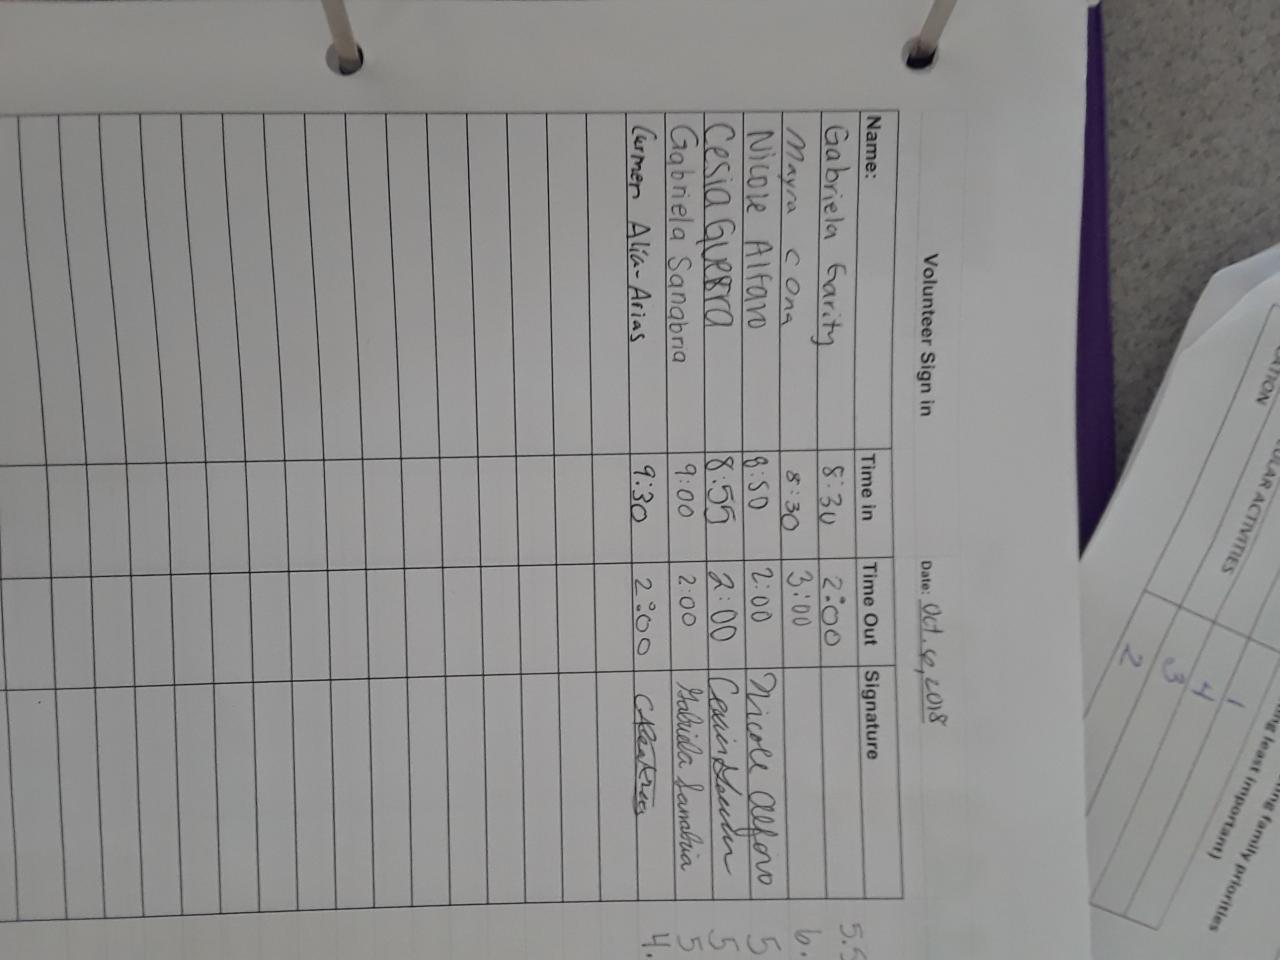 Volunteer Sign in Date: Oct. 4, 2018
Name: Time in Time Out Signature
Gabriela Garity 8:30 2:00 5.5
Mayra cona 8:30 3:00 6.
Nicole Alfaro 8:50 2:00 Nicole Alfaro 5
Cesia GUERRA 8:55 2:00 5
Gabriela Sanabria 9:00 2:00 Gabriela Sanabria 5
Carmen Alia-Arias 9:30 2:00 4.
family priorities
least important)
ACTIVITIES
1
4
3
2